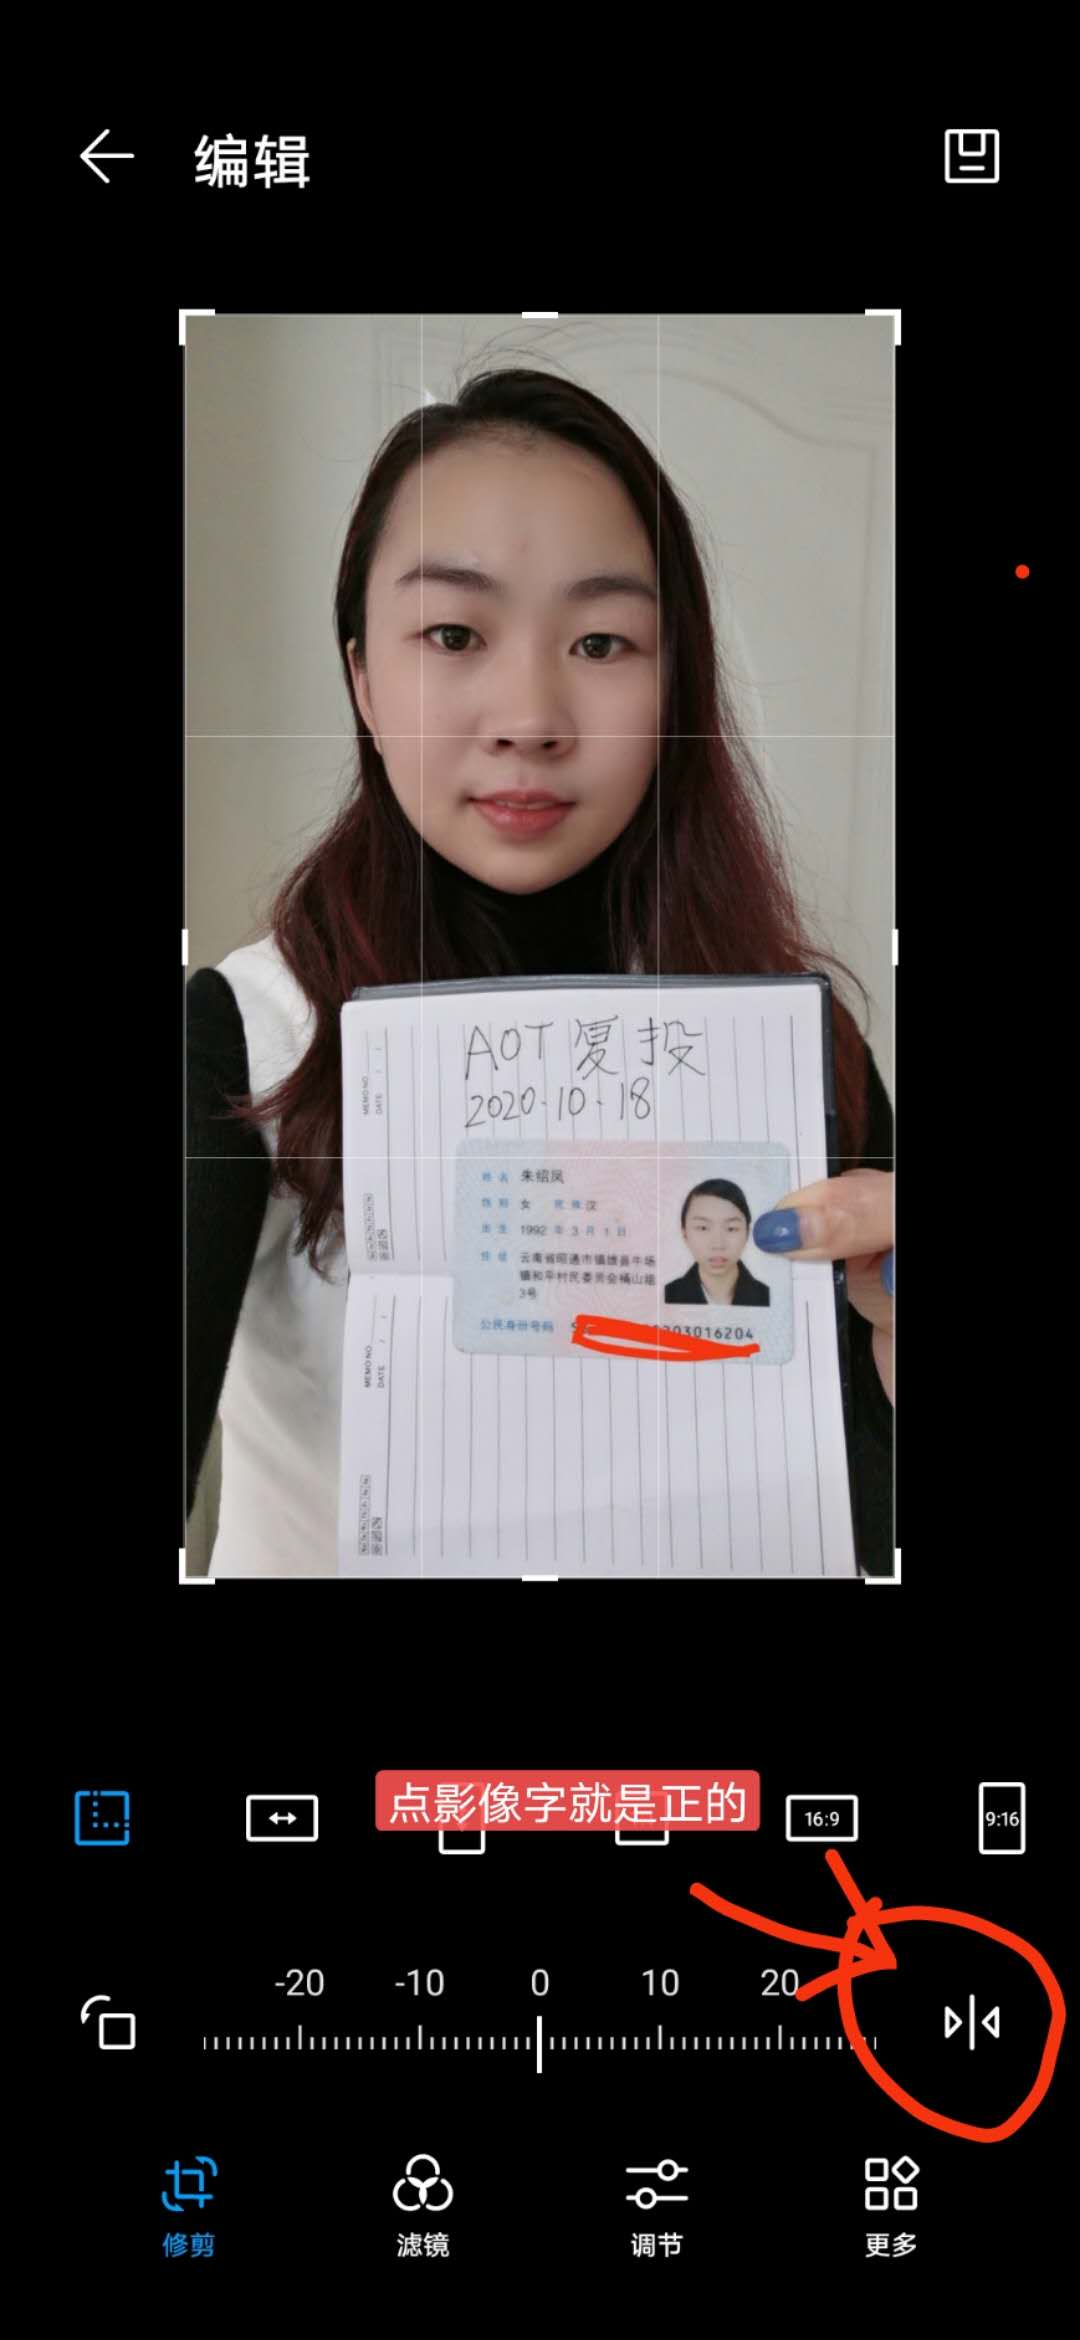 编辑
AOT 复投
2020.10.18
MEMO NO.
DATE / /
姓名 朱绍凤
性别 女 民族 汉
出生 1992 年 3 月 1 日
住址 云南省昭通市镇雄县牛场
镇和平村民委员会桶山组
3号
公民身份号码
MEMO NO.
DATE / /
点影像字就是正的
16:9
9:16
-20 -10 0 10 20
修剪 滤镜 调节 更多